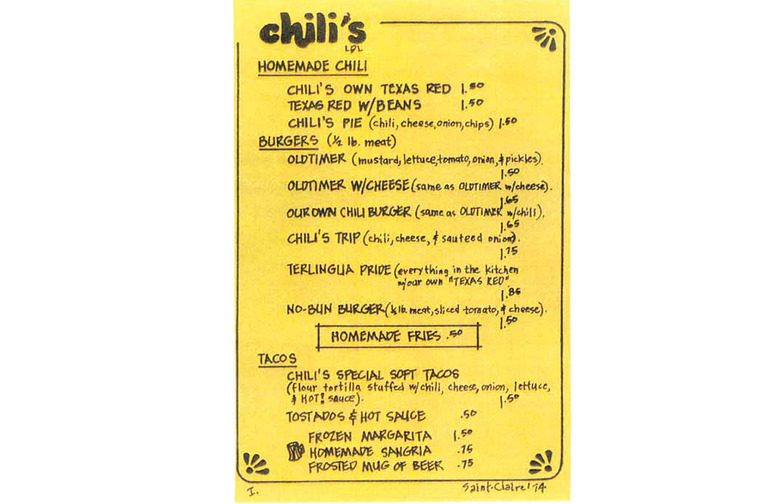 chili's
LPL
HOMEMADE CHILI
CHILI'S OWN TEXAS RED 1.50
TEXAS RED W/BEANS 1.50
CHILI'S PIE (chili, cheese, onion, chips) 1.50
BURGERS (½ lb. meat)
OLDTIMER (mustard, lettuce, tomato, onion, & pickles).
1.50
OLDTIMER W/CHEESE (same as OLDTIMER w/cheese).
1.65
OUR OWN CHILI BURGER (same as OLDTIMER w/chili).
1.65
CHILI'S TRIP (chili, cheese, & sauteed onion).
1.75
TERLINGUA PRIDE (everything in the kitchen
w/our own "TEXAS RED"
1.85
NO-BUN BURGER (½ lb. meat, sliced tomato, & cheese).
1.50
HOMEMADE FRIES .50
TACOS
CHILI'S SPECIAL SOFT TACOS
(flour tortilla stuffed w/chili, cheese, onion, lettuce,
& HOT! sauce).
1.50
TOSTADOS & HOT SAUCE .50
FROZEN MARGARITA 1.50
HOMEMADE SANGRIA .75
FROSTED MUG OF BEER .75
I.
Saint-Claire/'74